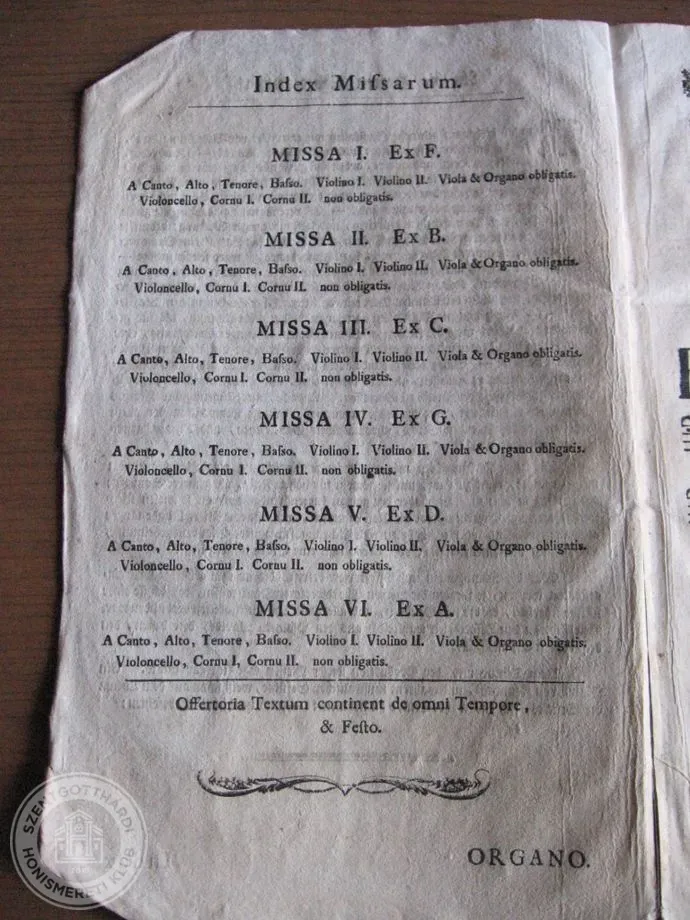 Index Miſsarum.
MISSA I. Ex F.
A Canto, Alto, Tenore, Baſso. Violino I. Violino II. Viola & Organo obligatis.
Violoncello, Cornu I. Cornu II. non obligatis.
MISSA II. Ex B.
A Canto, Alto, Tenore, Baſso. Violino I. Violino II. Viola & Organo obligatis.
Violoncello, Cornu I. Cornu II. non obligatis.
MISSA III. Ex C.
A Canto, Alto, Tenore, Baſso. Violino I. Violino II. Viola & Organo obligatis.
Violoncello, Cornu I. Cornu II. non obligatis.
MISSA IV. Ex G.
A Canto, Alto, Tenore, Baſso. Violino I. Violino II. Viola & Organo obligatis.
Violoncello, Cornu I. Cornu II. non obligatis.
MISSA V. Ex D.
A Canto, Alto, Tenore, Baſso. Violino I. Violino II. Viola & Organo obligatis.
Violoncello, Cornu I. Cornu II. non obligatis.
MISSA VI. Ex A.
A Canto, Alto, Tenore, Baſso. Violino I. Violino II. Viola & Organo obigatis.
Violoncello, Cornu I, Cornu II. non obligatis.
Offertoria Textum continent de omni Tempore,
& Feſto.
ORGANO.
SZENTGOTTHÁRDI
HONISMERETI KLUB